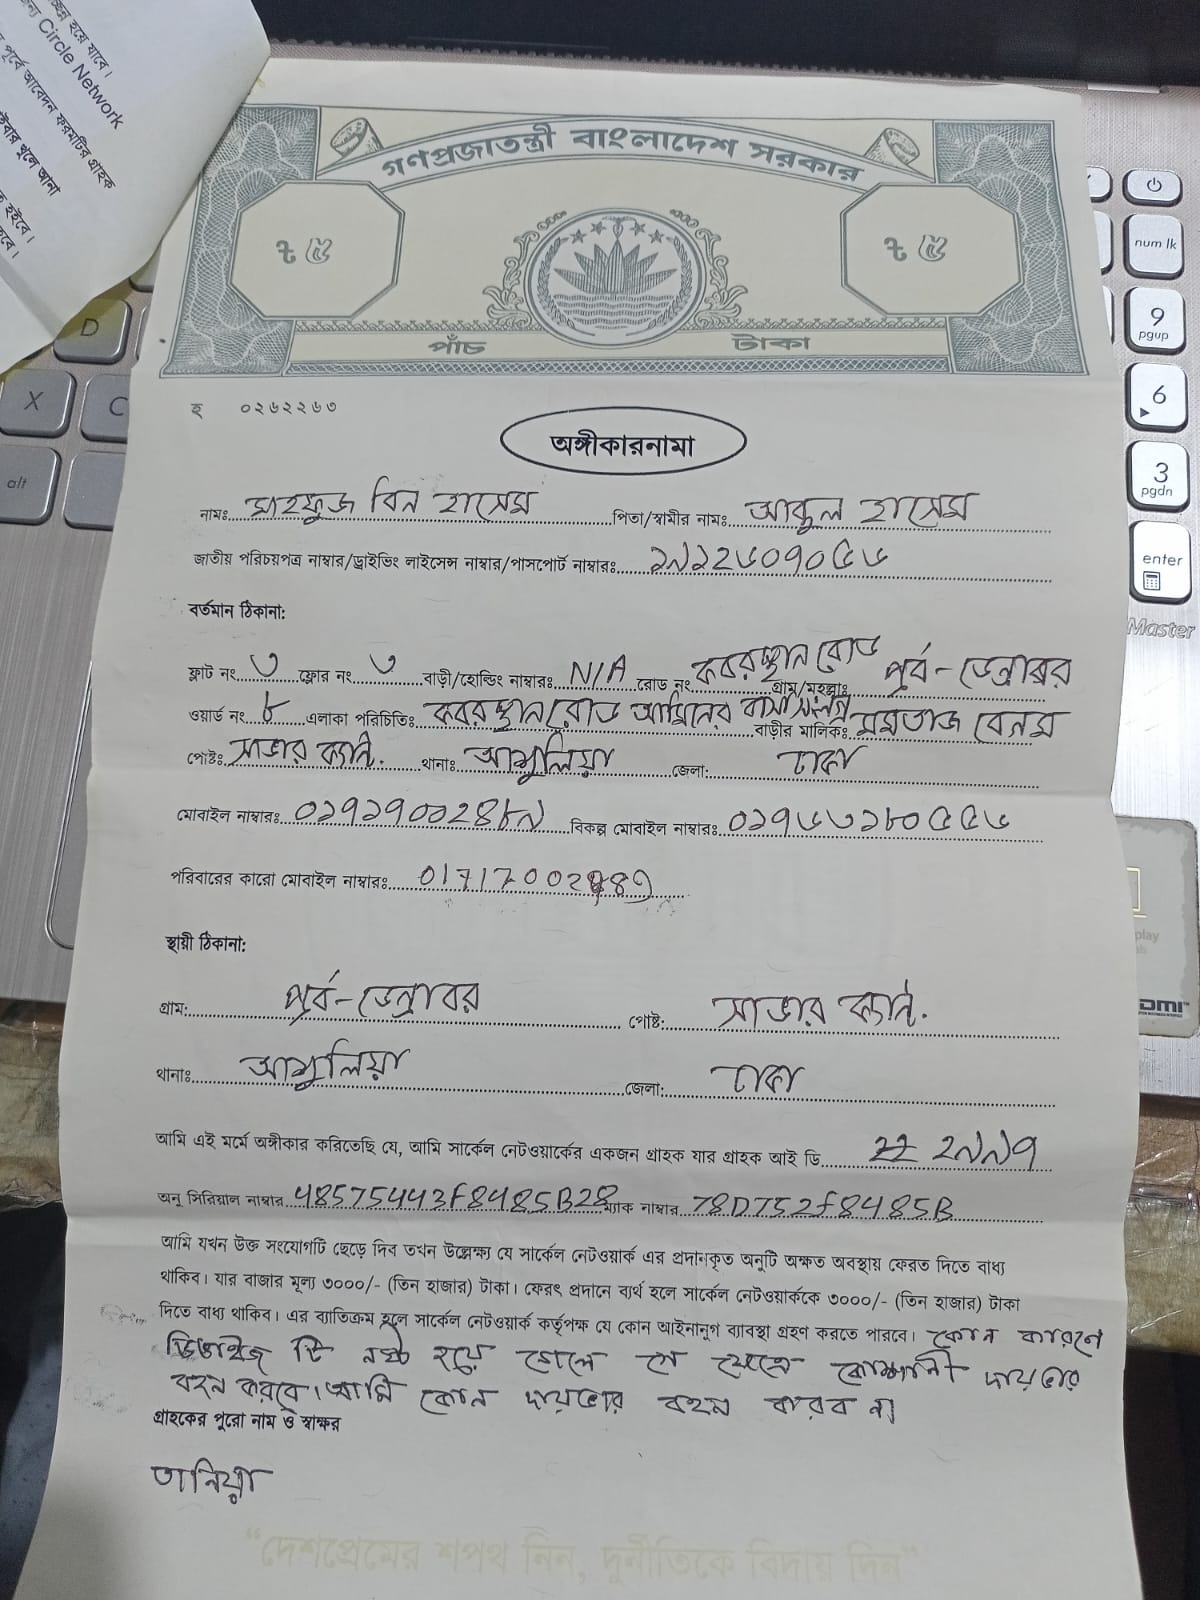 চ্ছিন্ন হয়ে যাবে।
Circle Network
পূর্বে আবেদন ফরমটির গ্রাহক
খুলে আনা
হইবে।
গণপ্রজাতন্ত্রী বাংলাদেশ সরকার
৳ ৫
৳ ৫
পাঁচ টাকা
হ ০২৬২২৬৩
অঙ্গীকারনামা
নামঃ মাহফুজ বিন হাসেম পিতা/স্বামীর নামঃ আবুল হাসেম
জাতীয় পরিচয়পত্র নাম্বার/ড্রাইভিং লাইসেন্স নাম্বার/পাসপোর্ট নাম্বারঃ ১৯১২৬০৭০৫৬
বর্তমান ঠিকানা:
ফ্লাট নং ৩ ফ্লোর নং ৩ বাড়ী/হোল্ডিং নাম্বারঃ N/A রোড নং কবরস্থান রোড গ্রাম/মহল্লাঃ পূর্ব-ডেন্ডাবর
ওয়ার্ড নং ৮ এলাকা পরিচিতিঃ কবরস্থান রোড আমিনের বাসা সংলগ্ন বাড়ীর মালিকঃ মমতাজ বেগম
পোষ্টঃ সাভার ক্যান্ট. থানাঃ আশুলিয়া জেলা: ঢাকা
মোবাইল নাম্বারঃ ০১৭১৭০০২৪৮৯ বিকল্প মোবাইল নাম্বারঃ ০১৭৬৩১৮০৫৫৬
পরিবারের কারো মোবাইল নাম্বারঃ
স্থায়ী ঠিকানা:
গ্রাম: পূর্ব-ডেন্ডাবর পোষ্ট: সাভার ক্যান্ট.
থানাঃ আশুলিয়া জেলা: ঢাকা
আমি এই মর্মে অঙ্গীকার করিতেছি যে, আমি সার্কেল নেটওয়ার্কের একজন গ্রাহক যার গ্রাহক আই ডি ২৯৯৭
অনু সিরিয়াল নাম্বার 48575443F8485B28 ম্যাক নাম্বার 78D752F8485B
আমি যখন উক্ত সংযোগটি ছেড়ে দিব তখন উল্লেক্ষ্য যে সার্কেল নেটওয়ার্ক এর প্রদানকৃত অনুটি অক্ষত অবস্থায় ফেরত দিতে বাধ্য
থাকিব। যার বাজার মূল্য ৩০০০/- (তিন হাজার) টাকা। ফেরৎ প্রদানে ব্যর্থ হলে সার্কেল নেটওয়ার্ককে ৩০০০/- (তিন হাজার) টাকা
দিতে বাধ্য থাকিব। এর ব্যাতিক্রম হলে সার্কেল নেটওয়ার্ক কর্তৃপক্ষ যে কোন আইনানুগ ব্যাবস্থা গ্রহণ করতে পারবে। কোন কারনে
ডিভাইজ টি নষ্ট হয়ে গেলে সে ক্ষেত্রে কোম্পানী দায়ভার
বহন করবে। আমি কোন দায়ভার বহন করব না
গ্রাহকের পুরো নাম ও স্বাক্ষর
তানিয়া
“দেশপ্রেমের শপথ নিন, দুর্নীতিকে বিদায় দিন”